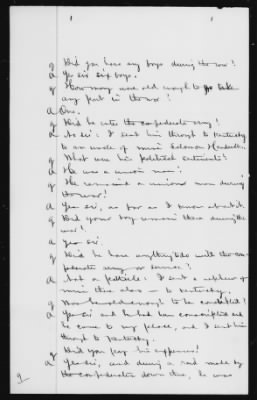 Q Did you have any boys during the war?
A Yes sir six boys.
Q How many were old enough to take
any part in the war?
A One.
Q Did he enter the confederate army?
A No sir: I sent him through to Kentucky
to an uncle of mine Solomon
Q What were his political sentiments?
A He was a union man.
Q He remained a union man during
the war?
A Yes sir, as far as I know about it.
Q Did your boy remain there during the
war?
A Yes sir.
Q Did he have anything to do with the con-
federate army or service?
A Not a particle: I sent a nephew of
mine there also — to Kentucky.
Q Was he old enough to be conscripted?
A Yes sir and he had been conscripted and
he came to my place, and I sent him
through to Kentucky.
Q Did you pay his expenses?
A Yes sir, and during a raid made by
the confederates down there, he was
9